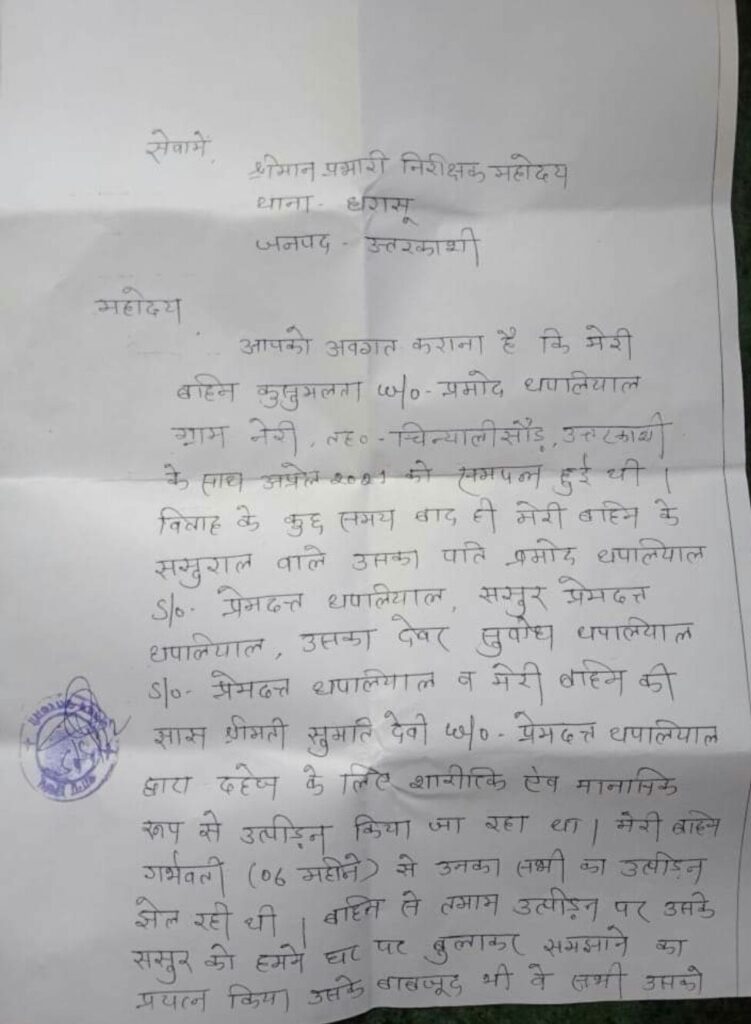 सेवामें,
श्रीमान प्रभारी निरीक्षक महोदय
थाना - धरासू
जनपद - उत्तरकाशी
महोदय
आपको अवगत कराना है कि मेरी
बहिन कुसुमलता w/o- प्रमोद थपलियाल
ग्राम नेरी, तह०- चिन्यालीसौड़, उत्तरकाशी
के साथ अप्रेल 2021 को समपन्न हुई थी।
विवाह के कुछ समय बाद ही मेरी बहिन के
ससुराल वाले उसका पति प्रमोद थपालियाल
S/o- प्रेमदत्त थपालियाल, ससुर प्रेमदत्त
थपालियाल, उसका देवर सुवोध थपालियाल
S/o- प्रेमदत्त थपालियाल व मेरी बहिन की
सास श्रीमती सुमति देवी w/o- प्रेमदत्त थपालियाल
द्वारा दहेज के लिए शारीरिक ऐंव मानसिक
रूप से उत्पीड़न किया जा रहा था। मेरी बहिन
गर्भवती (06 महीने) से उनका सभी का उत्पीड़न
झेल रही थी। बहिन से तमाम उत्पीड़न पर उसके
ससुर को हमने घर पर बुलाकर समझाने का
प्रयत्न किया उसके बाबजूद भी वे सभी उसको